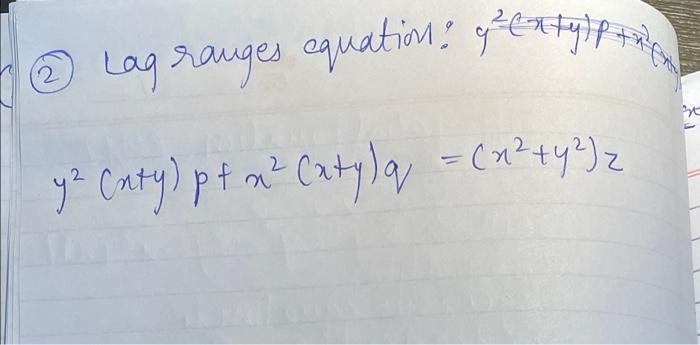 ② Lagranges equation: y²(x+y)p + x²(x+y)
y² (x+y) p + x² (x+y) q = (x²+y²) z